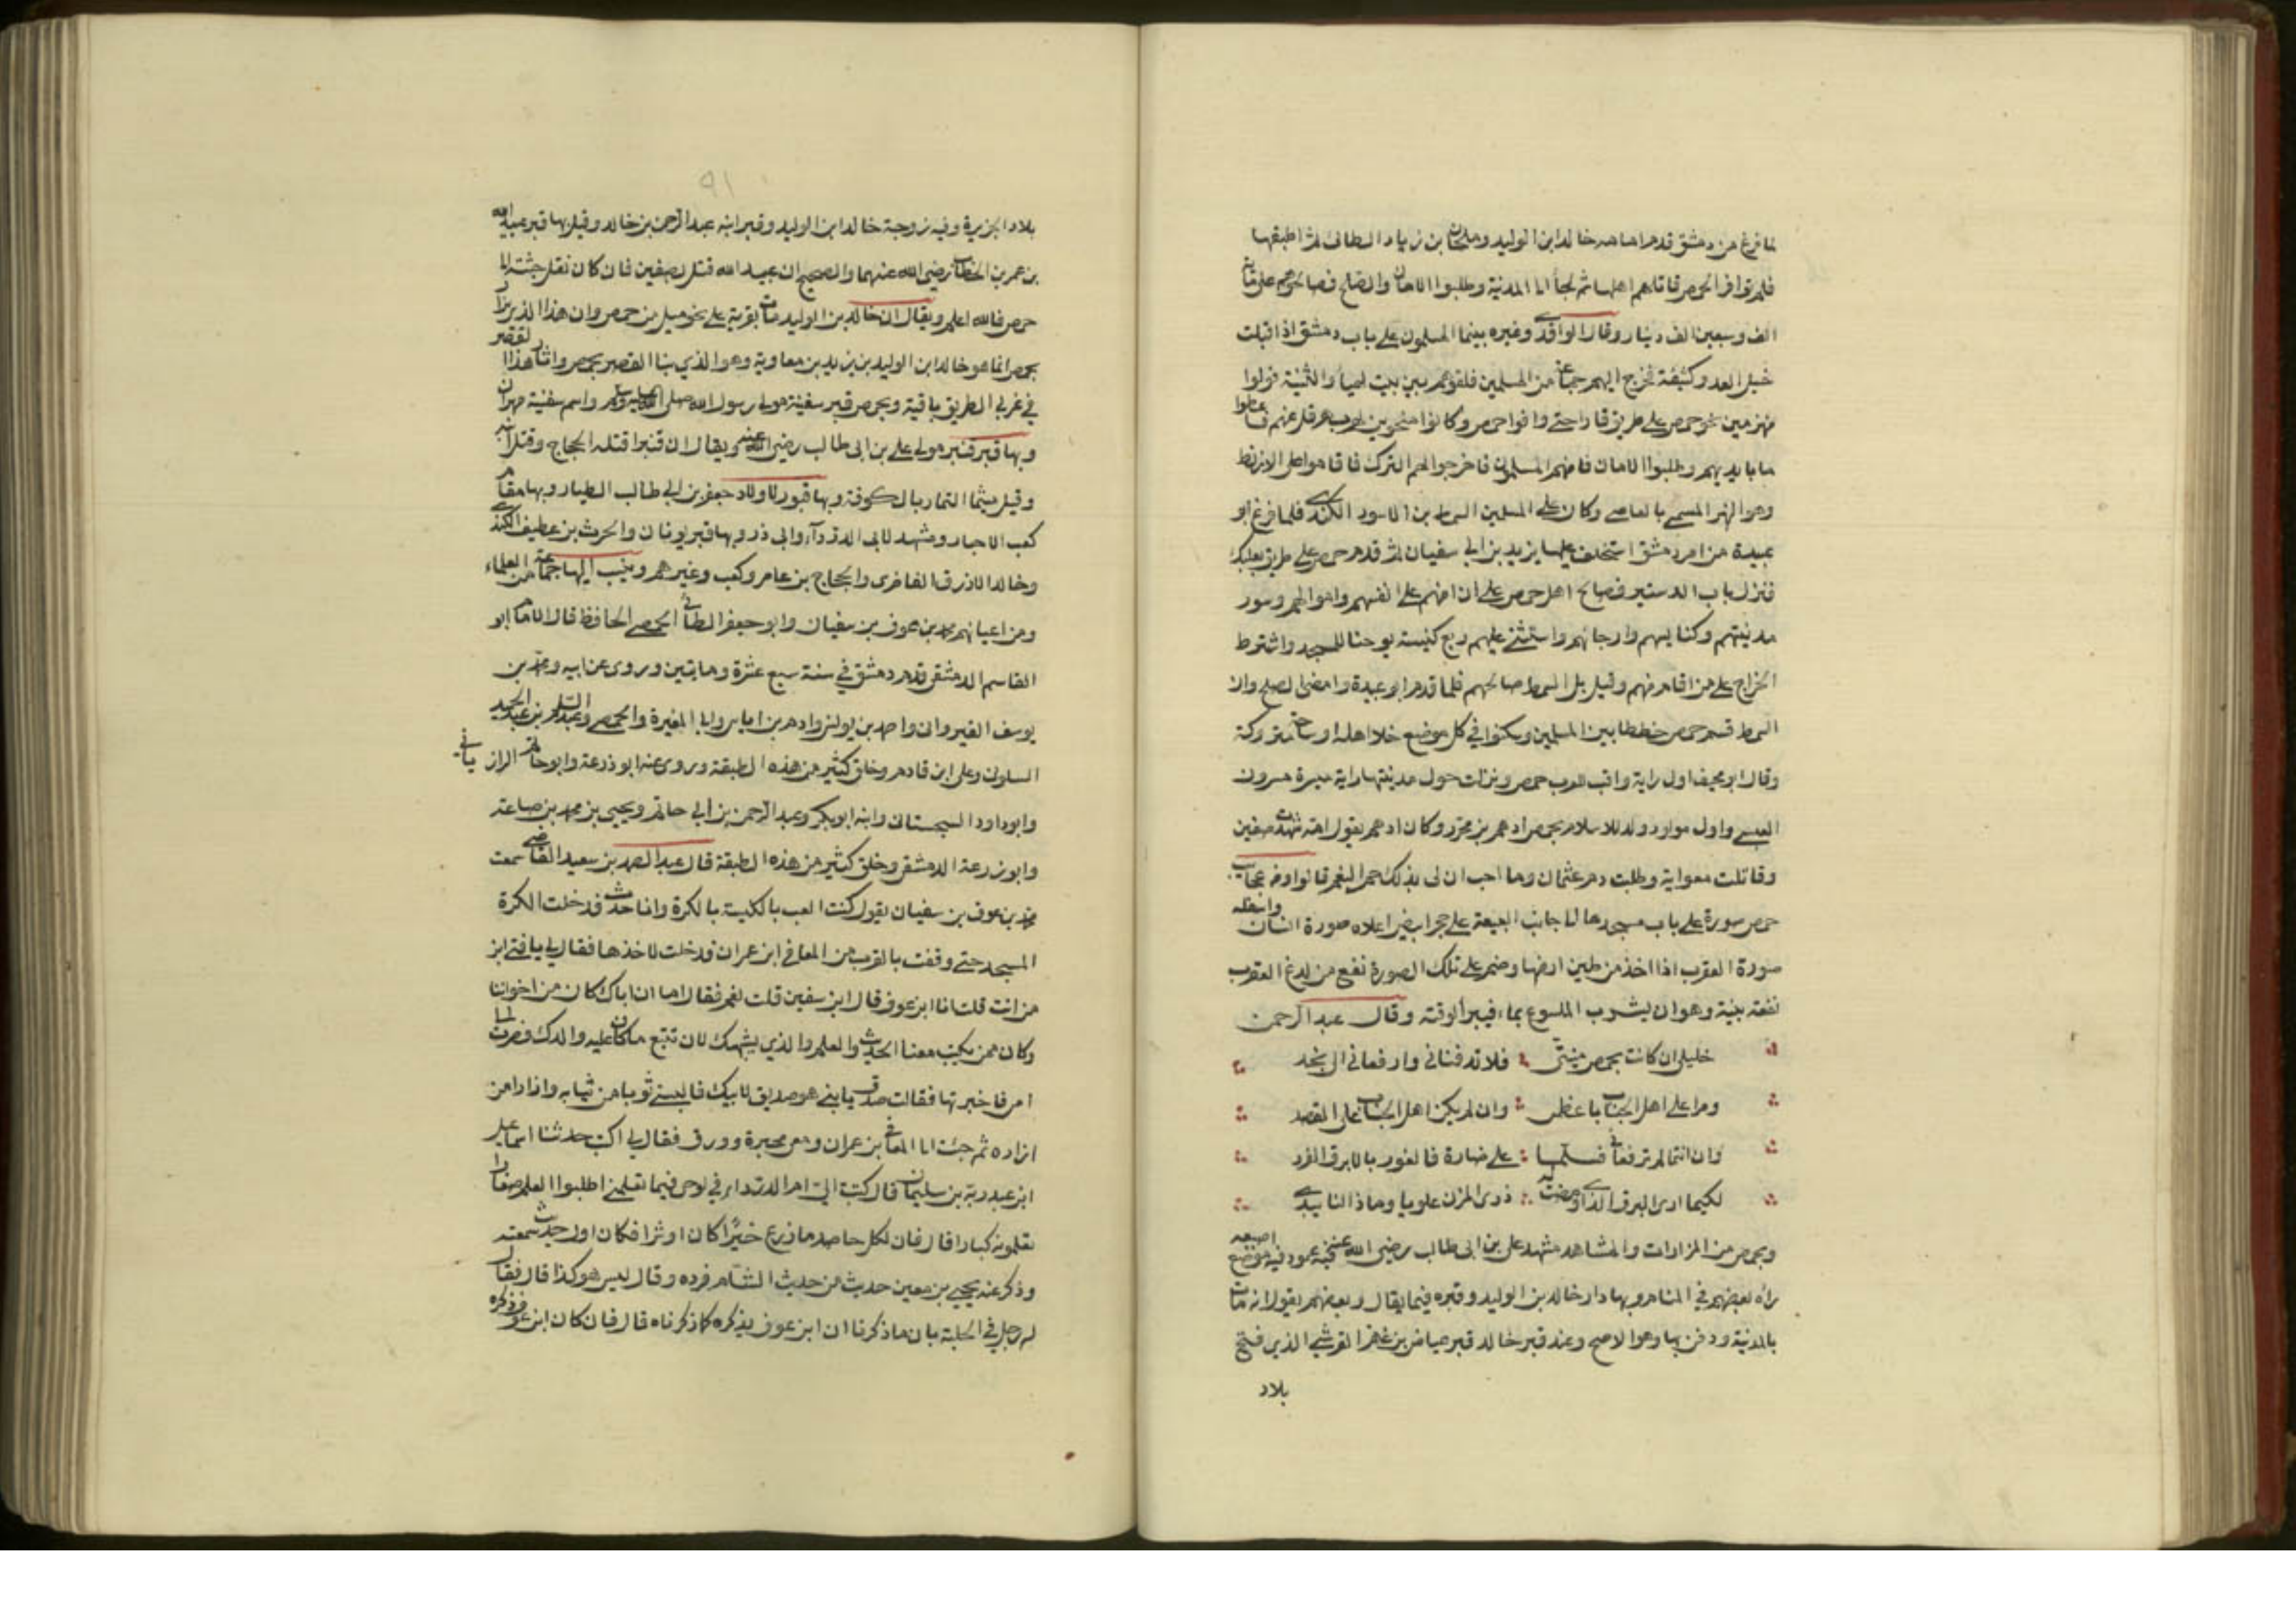 لما فرغ من دمشق قدم امامه خالد ابن الوليد وملحان بن زياد الطائى ثم اطبقها
فلما توافوا الحمص قاتلهم اهلها ثم لجأ الى المدنية وطلبوا الامان والصلح فصالحوهم على ماية
الف وسبعين الف دينار وقال الواقدي وغيره بينما المسلمون على باب دمشق اذا اقبلت
خيل العدو كثيفة فخرج اليهم جماعة من المسلمين فلقوهم بين بيت لهيا والثنية فولوا
منهزمين نحو حمص على طريق قارا حتى وافوا حمص وكانوا متخوبين لهرب هرقل عنهم فاعطوا
ما بايديهم وطلبوا الامان فامنهم المسلمون فاخرجوا لهم النزل فاقاموا على الارنط
وهو النهر المسمى بالعاصى وكان على المسلمين السمط بن الاسود الكندي فلما فرغ ابو
عبيدة من امر دمشق استخلف عليها يزيد بن ابي سفيان ثم قدم حمص على طريق بعلبك
فنزل باب الدستير فصالح اهل حمص على ان امنهم على انفسهم واموالهم وسور
مدنيتهم وكنايسهم وارجائهم واستثنى عليهم ربع كنيسة يوحنا للمسجد واشترط
الخراج على من اقام منهم وقيل بل السمط صالحهم فلما قدم ابو عبيدة وامضى الصلح وان
السمط قسم حمص خططا بين المسلمين وسكنوا في كل موضع خلا اهله او ساحة متروكة
وقال ابو مخيف اول راية وافت للعرب حمص ونزلت حول مدينتها راية ميسرة مسرون
العبسى واول مولود ولد للاسلام بحمص ادهم بن محرز وكان ادهم يقول امه شهدت صفين
وقاتلت معواية وطلبت دم عثمان وما احب ان لى بذلك حمر النعم قالوا ومن عجايب
حمص سورة على باب مسجدها الى جانب البيعة على حجر ابيض اعلاه صورة انسان واسفله
صورة العقرب اذا اخذ من طين ارضها وختم على تلك الصورة نفع من لدغ العقرب
نفعة بينة وهو ان يشرب الملسوع بماء فيبرأ لوقته وقال عبد الرحمن
خليلى ان كانت بحمص منيتى فلا تدفنانى وارفعانى الى نجد
ومرا على اهل الجناب باعظمى وان لم يكن اهل الجناب على القصد
وان انتما لم ترفعانى فسلما على ضارة فالغور بالابرق الفرد
لكيما ارى البرق الذي اومضت له ذرى المزن علويا وماذا لنا يبدي
وبحمص من المزارات والمشاهد مشهد على بن ابى طالب رضى الله عنه فيه عمود فيه موضع اصبعه
رآه بعضهم في المنام وبها دار خالد بن الوليد وقبره فيما يقال وبعضهم يقول انه مات
بالمدنية ودفن بها وهو الاصح وعند قبر خالد قبر عياض بن غنم القرشي الذي فتح
بلاد
٩١
بلاد الجزيرة وفيه زوجة خالد ابن الوليد وقبر ابنه عبد الرحمن بن خالد وقيل بها قبر عبيد الله
بن عمر بن الخطاب رضى الله عنهما والصحيح ان عبيد الله قتل بصفين فان كان نقل جثته الى
حمص فالله اعلم ويقال ان خالد بن الوليد مات بقرية على نحو ميل من حمص وان هذا الذي يزار
بحمص انما هو خالد ابن الوليد بن يزيد بن معاوية وهو الذي بنا القصر بحمص واثار هذا القصر
في غربي الطريق باقية وبحمص قبر سفينة مولى رسول الله صلى الله عليه وسلم واسم سفينة مهران
وبها قبر قنبر مولى على بن ابى طالب رضى الله عنه ويقال ان قنبرا قتله الحجاج وقتل ابنه
وقيل ميثما التمار بالكوفة وبها قبور لاولاد جعفر بن ابي طالب الطيار وبها مقام
كعب الاحبار ومشهد لابى الدردآء وابى ذر وبها قبر يونان والحرث بن عطيف الكندي
وخالد الازرق الغاضرى والحجاج بن عامر وكعب وغيرهم وينسب اليها جماعة من العلماء
ومن اعيانهم محمد بن عوف بن سفيان وابو جعفر الطائى الحمصى الحافظ قال الامام ابو
القاسم الدمشقى قدم دمشق في سنة سبع عشرة ومايتين وروى عن ابيه ومحمد بن
يوسف القيروانى واحمد بن يونس وادم بن اياس وابا المغيرة والحمصى وعبد السلام بن عبد الحميد
السلونى وعلى ابن قادم وخلق كثير من هذه الطبقة وروى عنه ابو زرعة وابو حاتم الرازيانى
وابو داود السجستانى وابنه ابو بكر وعبد الرحمن بن ابي حاتم ويحيى بن محمد بن صاعد
وابو زرعة الدمشقى وخلق كثير من هذه الطبقة قال عبد الصمد بن سعيد القاضى سمعت
محمد بن عوف بن سفيان يقول كنت العب بالكنيسة بالكرة وانا حدث فدخلت الكرة
المسجد حتى وقفت بالقرب من المعافى ابن عمران فدخلت لاخذها فقال لي يا فتى ابن
من انت قلت انا ابن عوف قال ابن سفين قلت نعم فقال اما ان اباك كان من اخواننا
وكان ممن يكتب معنا الحديث والعلم والذي يشبهك ان تتبع ما كان عليه والدك فصرت الى
امى فاخبرتها فقالت صدق يا بنى هو صديق لابيك فالبستنى ثوبا من ثيابه وازارا من
ازاره ثم جئت الى المعافى بن عمران ومعى محبرة وورق فقال لي اكتب حدثنا اسماعيل
ابن عبد ربة بن سليمان قال كتبت الى ام الدرداء في لوحى فيما تعلمنى اطلبوا العلم صغارا
تعلمونه كبارا قال فان لكل حاصد ما زرع خيرًا كان او شرا فكان اول حديث سمعته
وذكر عنه يحيى بن معين حديث من حديث الشام فرده وقال ليس هو كذا قال فقال
له رجل في الحلبة بان ما ذكرنا ان ابن عوف يذكره كما ذكرناه قال فان كان ابن عوف ذكره